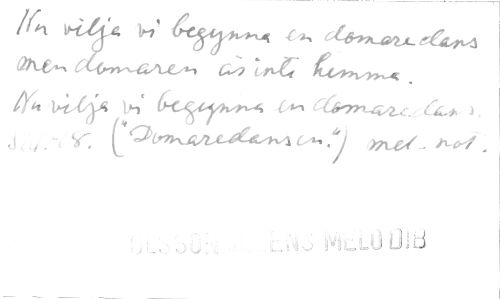 Nu vilja vi begynna en domaredans
men domaren är inte hemma.
Nu vilja vi begynna en domaredans.
("Domaredansen.") mel. not.
OLSSON MELODIB